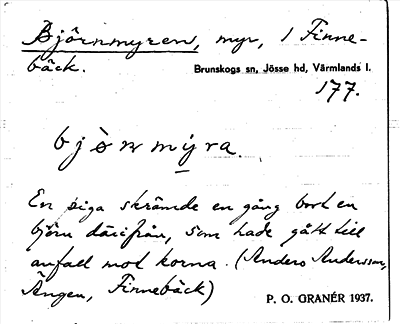 Björnmyren, myr, i Finne-
bäck.
Brunskogs sn, Jösse hd, Värmlands l.
177.
bjò̀nmýra.
En piga skrämde en gång bort en
björn därifrån, som hade gått till
anfall mot korna. (Anders Andersson,
Ängen, Finnebäck)
P. O. GRANÉR 1937.